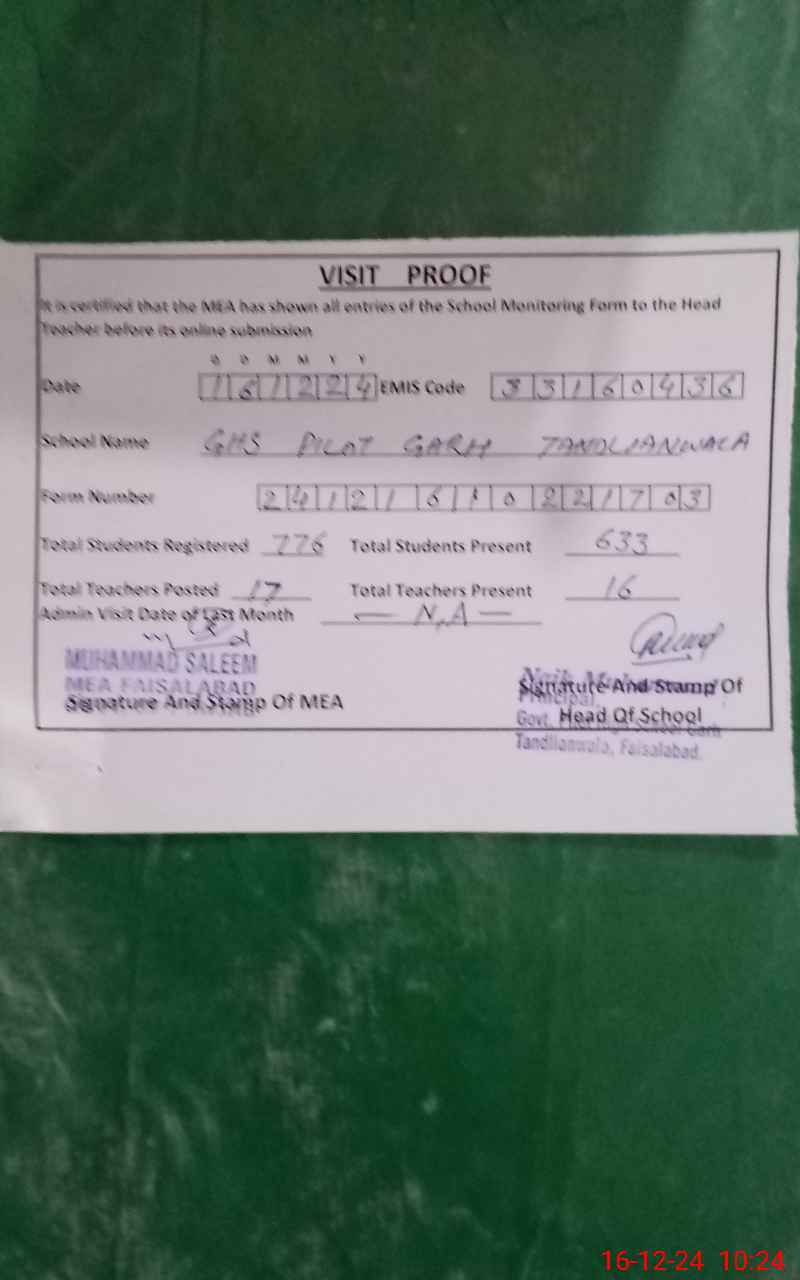 VISIT PROOF
It is certified that the MEA has shown all entries of the School Monitoring Form to the Head
Teacher before its online submission
D D M M Y Y
Date 161224 EMIS Code 33160436
School Name GHS PILOT GARH TANDLIANWALA
Form Number 24121610221703
Total Students Registered 776 Total Students Present 633
Total Teachers Posted 17 Total Teachers Present 16
Admin Visit Date of Last Month — N.A —
MUHAMMAD SALEEM
MEA FAISALABAD
Signature And Stamp Of MEA
Signature And Stamp Of
Principal,
Head Of School
Govt. School Garh
Tandlianwala, Faisalabad.
16-12-24 10:24